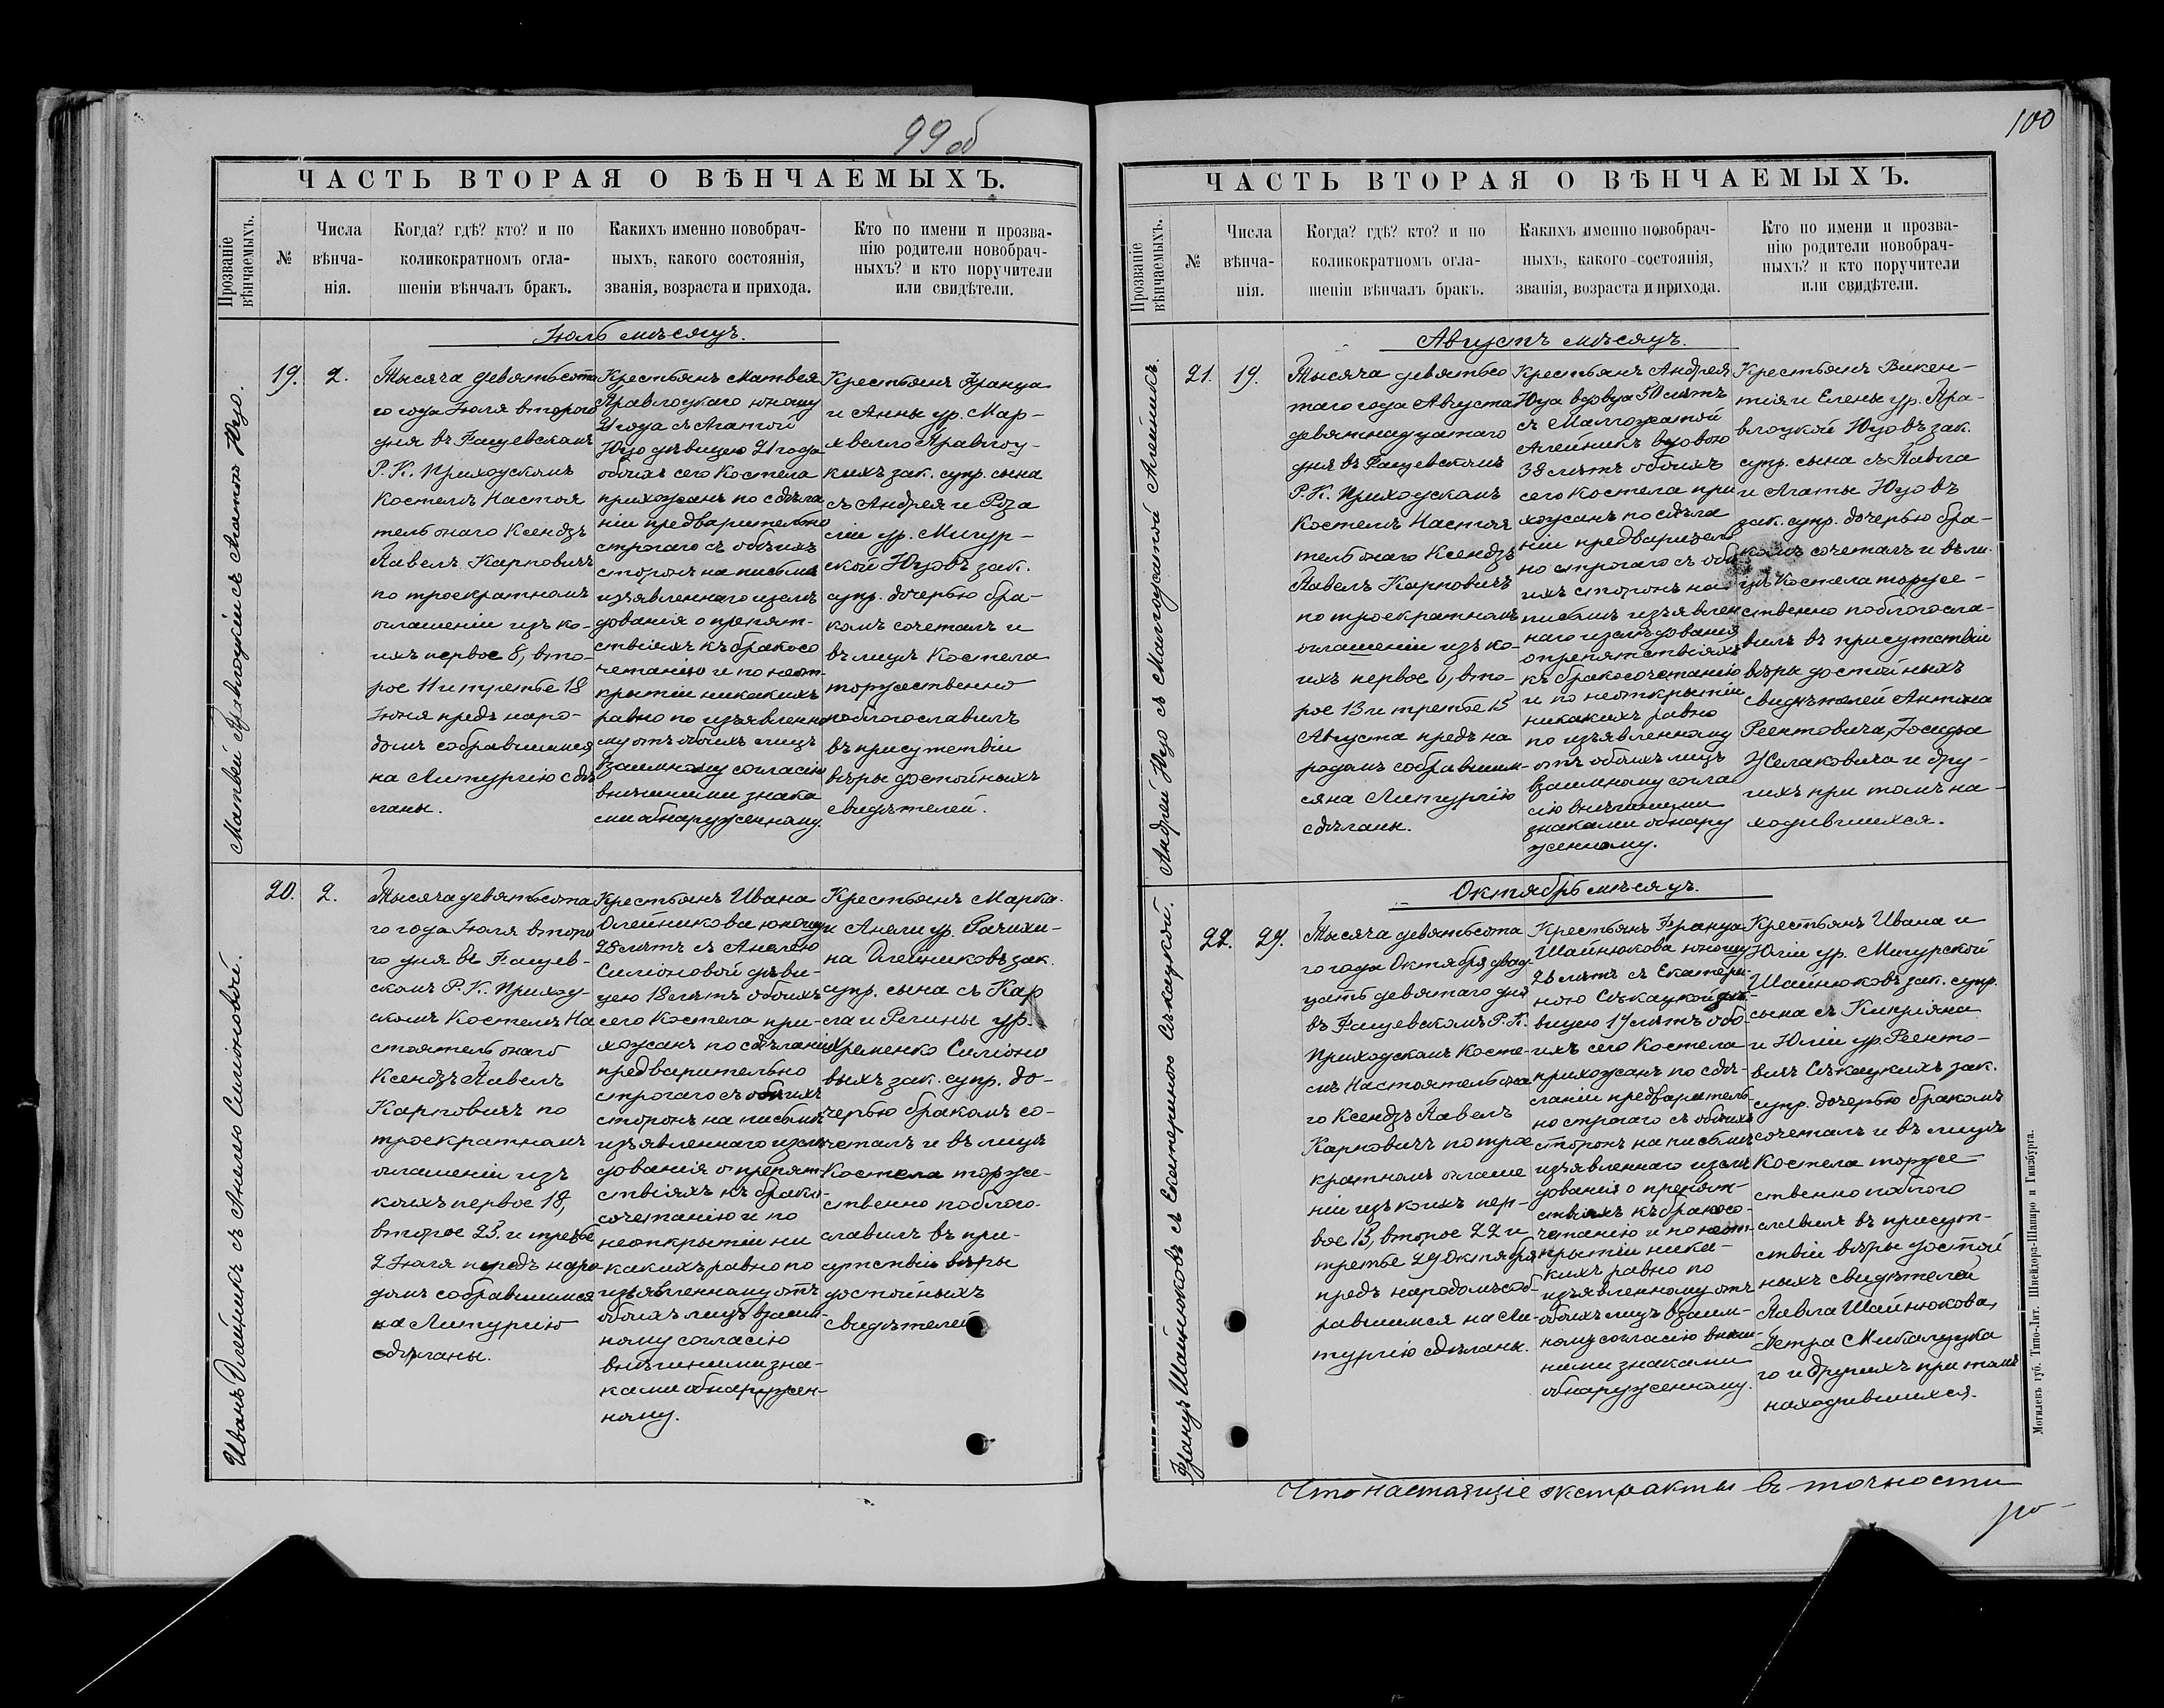 99 об
ЧАСТЬ ВТОРАЯ О ВѢНЧАЕМЫХЪ.
Прозваніе
вѣнчаемыхъ.
№
Числа
вѣнча-
нія.
Когда? гдѣ? кто? и по
коликократномъ огла-
шеніи вѣнчалъ бракъ.
Какихъ именно новобрач-
ныхъ, какого состоянія,
званія, возраста и прихода.
Кто по имени и прозва-
нію родители новобрач-
ныхъ? и кто поручители
или свидѣтели.
Іюль мѣсяцъ.
Матвѣй Правлоцкій съ Агатою Юзо.
19.
2.
Тысяча девятьсота
го года Іюля второго
дня въ Фащевскомъ
Р. К. Приходскомъ
Костелѣ Настоя
тель онаго Ксендзъ
Павелъ Карповичъ
по троекратномъ
оглашеніи изъ ко-
ихъ первое 8, вто-
рое 11 и третье 18
Іюня предъ наро-
домъ собравшимся
на Литургію сдѣ
ланы.
Крестьянъ Матвея
Правлоцкаго юношу
21 года съ Агатой
Юзо дѣвицею 21 года
обоихъ сего Костела
прихожанъ по сдѣла
ніи предварительно
строгаго съ обѣихъ
сторонъ на письмѣ
изъявленнаго изслѣ
дованія о препят-
ствіяхъ къ бракосо
четанію и по неот-
крытіи никакихъ
равно по изъявленно
му отъ обоихъ лицъ
взаимному согласію
внѣшними знака
ми обнаруженному.
Крестьянъ Франца
и Анны ур. Мар-
хвелло Правлоц-
кихъ зак. супр. сына
съ Андрея и Роза
ліи ур. Мигур-
ской Юзовъ зак.
супр. дочерью бра-
комъ сочеталъ и
въ лицѣ Костела
торжественно
поблагославилъ
въ присутствіи
вѣры достойныхъ
Свидѣтелей.
Иванъ Олейникъ съ Анелею Силіоновой.
20.
2.
Тысяча девятьсота
го года Іюля второ
го дня въ Фащев-
скомъ Р. К. Приход-
скомъ Костелѣ На
стоятель онаго
Ксендзъ Павелъ
Карповичъ по
троекратномъ
оглашеніи изъ
коихъ первое 18,
второе 25. и третье
2 Іюля передъ наро
домъ собравшимся
на Литургію
сдѣланы.
Крестьянъ Ивана
Олейникова юношу
28 лѣтъ съ Анелею
Силіоновой дѣви-
цею 18 лѣтъ обоихъ
сего Костела при-
хожанъ по сдѣланіи
предварительно
строгаго съ обѣихъ
сторонъ на письмѣ
изъявленнаго изслѣ
дованія о препят-
ствіяхъ къ брако-
сочетанію и по
неоткрытіи ни
какихъ равно по
изъявленному отъ
обоихъ лицъ взаим-
ному согласію
внѣшними зна-
ками обнаружен-
ному.
Крестьянъ Марка
и Анели ур. Рачихи-
на Олейниковъ зак.
супр. сына съ Кар
ла и Регины ур.
Хременко Силіоно
выхъ зак. супр. до-
черью бракомъ со-
четалъ и въ лицѣ
Костела торже-
ственно поблаго-
славилъ въ при-
сутствіи вѣры
достойныхъ
Свидѣтелей
100
ЧАСТЬ ВТОРАЯ О ВѢНЧАЕМЫХЪ.
Прозваніе
вѣнчаемыхъ.
№
Числа
вѣнча-
нія.
Когда? гдѣ? кто? и по
коликократномъ огла-
шеніи вѣнчалъ бракъ.
Какихъ именно новобрач-
ныхъ, какого состоянія,
званія, возраста и прихода.
Кто по имени и прозва-
нію родители новобрач-
ныхъ? и кто поручители
или свидѣтели.
Августъ мѣсяцъ.
Андрей Юзо съ Малгожатой Алейникъ.
21.
19.
Тысяча девятьсо
таго года Августа
девятнадцатаго
дня въ Фащевскомъ
Р. К. Приходскомъ
Костелѣ Настоя
тель онаго Ксендзъ
Павелъ Карповичъ
по троекратномъ
оглашеніи изъ ко-
ихъ первое 6, вто-
рое 13 и третье 15
Августа предъ на
родомъ собравшим-
ся на Литургію
сдѣланы.
Крестьянъ Андрея
Юза вдовца 50 лѣтъ
съ Малгожатой
Алейникъ вдовою
38 лѣтъ обоихъ
сего Костела при
хожанъ по сдѣла
ніи предваритель
но строгаго съ обѣ
ихъ сторонъ на
письмѣ изъявлен
наго изслѣдованія
о препятствіяхъ
къ бракосочетанію
и по неоткрытіи
никакихъ равно
по изъявленному
отъ обоихъ лицъ
взаимному согла
сію внѣшними
знаками обнару
женному.
Крестьянъ Викен-
тія и Елены ур. Пра-
влоцкой Юзовъ зак.
супр. сына съ Павла
и Агаты Юзовъ
зак. супр. дочерью бра-
комъ сочеталъ и въ ли-
цѣ Костела торже-
ственно поблагосла-
вилъ въ присутствіи
вѣры достойныхъ
Свидѣтелей Антона
Реентовича, Іосифа
Желаковича и дру-
гихъ при томъ на-
ходившихся.
Октябрь мѣсяцъ.
Францъ Шайнюковъ съ Екатериною Сѣкацкой.
22.
29.
Тысяча девятьсота
го года Октября двад-
цать девятаго дня
въ Фащевскомъ Р. К.
Приходскомъ Косте-
лѣ Настоятель она
го Ксендзъ Павелъ
Карповичъ по трое
кратномъ оглаше
ніи изъ коихъ пер-
вое 15, второе 22 и
третье 29 Октября
предъ народомъ соб-
равшимся на Ли-
тургію сдѣланы.
Крестьянъ Франца
Шайнюкова юношу
26 лѣтъ съ Екатери-
ною Сѣкацкой дѣ-
вицею 19 лѣтъ обо-
ихъ сего Костела
прихожанъ по сдѣ-
ланіи предваритель-
но строгаго съ обѣихъ
сторонъ на письмѣ
изъявленнаго изслѣ
дованія о препят-
ствіяхъ къ бракосо-
четанію и по неот-
крытіи ника-
кихъ равно по
изъявленному отъ
обоихъ лицъ взаим-
ному согласію внѣш-
ними знаками
обнаруженному.
Крестьянъ Ивана и
Юліи ур. Мигурской
Шайнюковъ зак. супр.
сына съ Кипріяна
и Юліи ур. Реенто-
вичъ Сѣкацкихъ зак.
супр. дочерью бракомъ
сочеталъ и въ лицѣ
Костела торже-
ственно поблаго
славилъ въ присут-
ствіи вѣры достой
ныхъ свидѣтелей
Павла Шайнюкова,
Петра Михалуцка
го и другихъ при томъ
находившихся.
Могилевъ губ. Типо-Лит. Шнейдора-Шапиро и Гинзбурга.
Что настоящіе экстракты въ точности